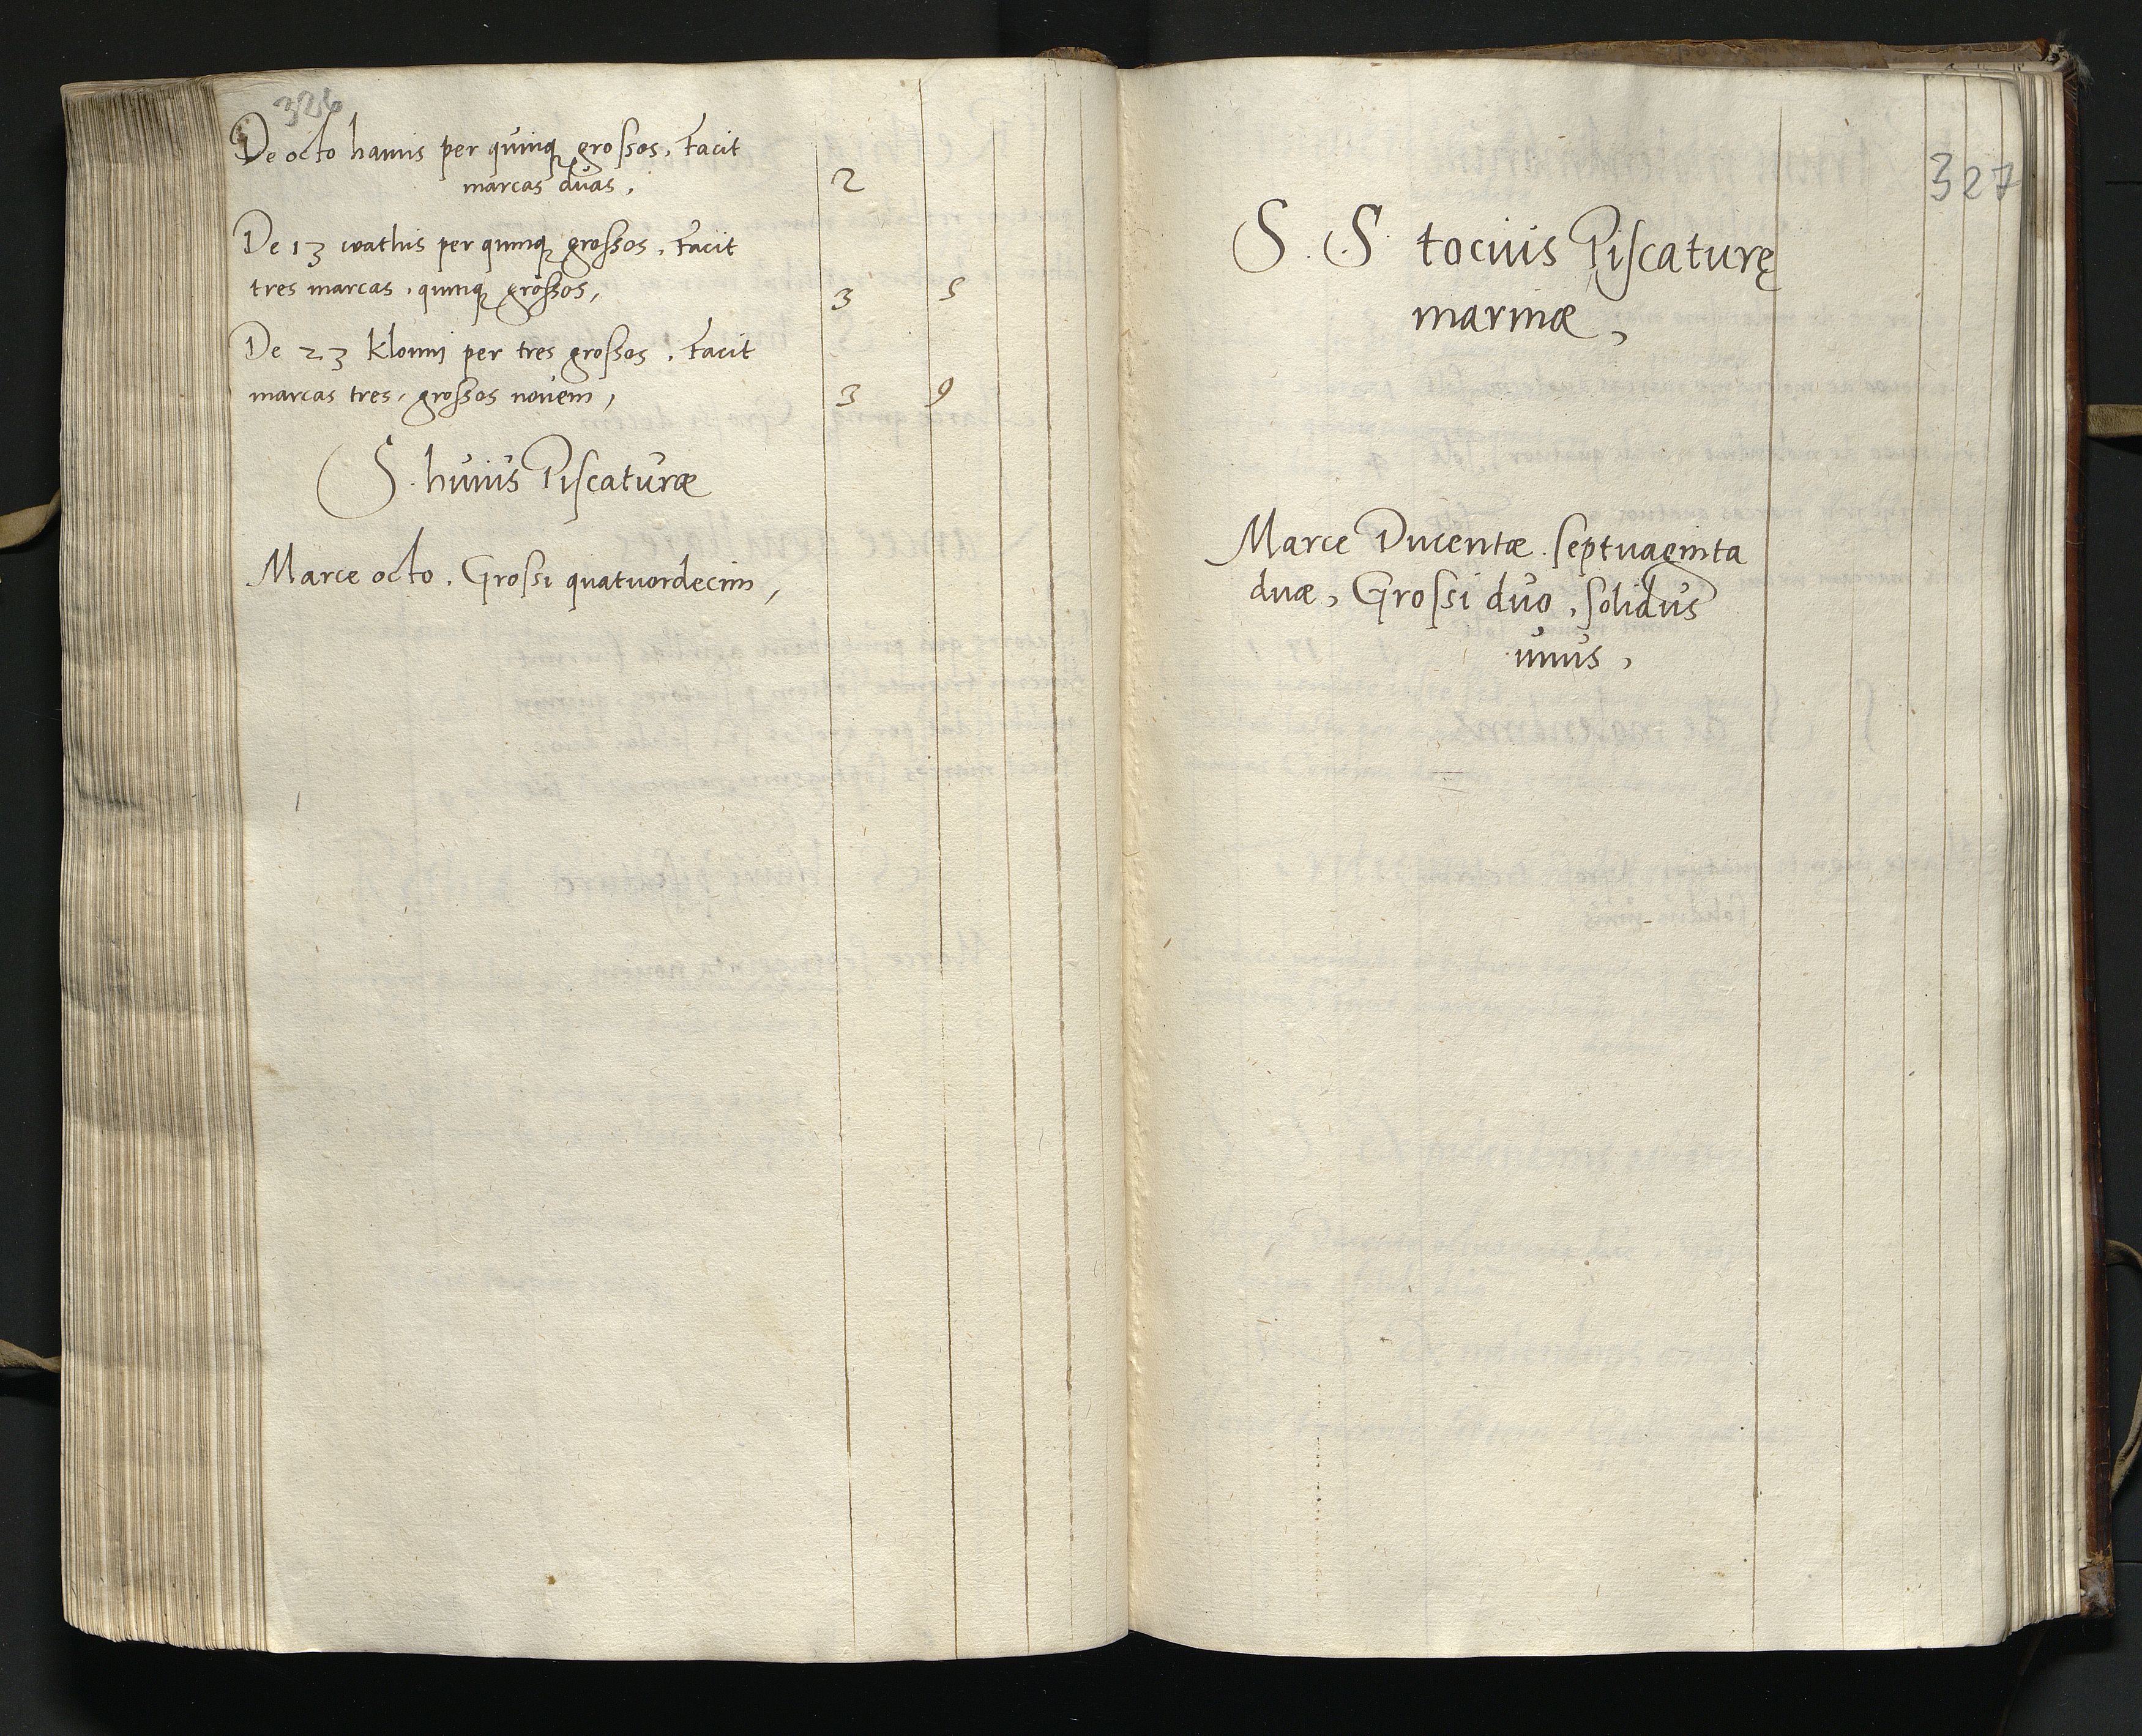 326
De octo hamis per quinq grossos, facit
marcas duas,
2
De 13 wathis per quinq grossos, facit
tres marcas, quinq grossos,
3 5
De 23 klonni per tres grossos, facit
marcas tres, grossos novem,
3 9
S. huius Piscaturæ
Marce octo, Grossi quatuordecim,
327
S. S. tocius Piscaturę
marinæ,
Marce Ducentæ septuaginta
duæ, Grossi duo, solidus
unus,